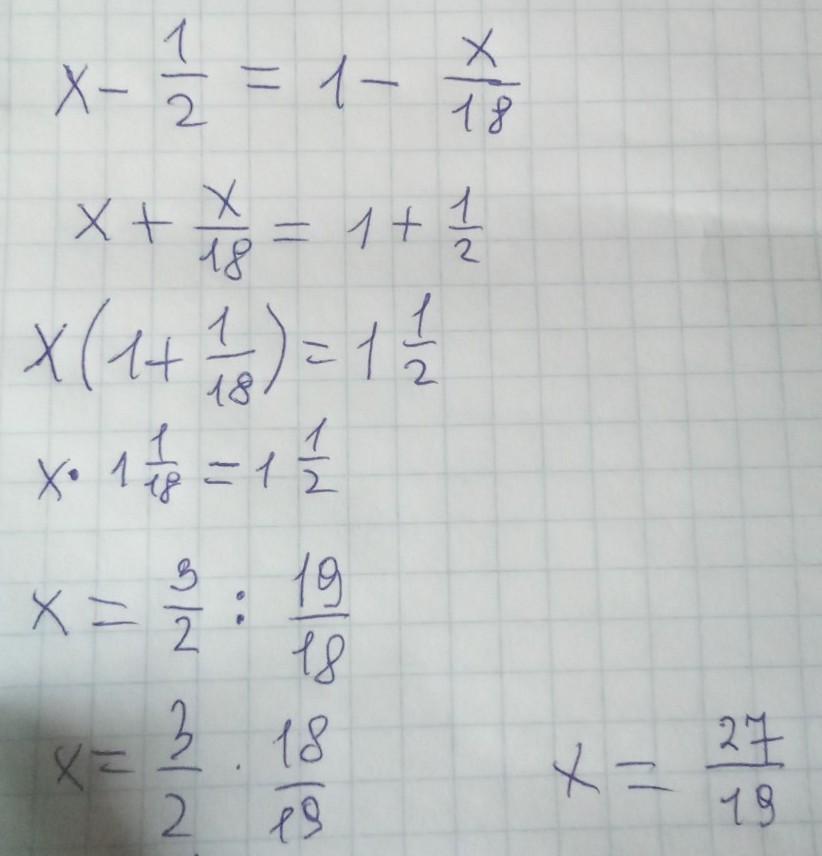 x - 1/2 = 1 - x/18
x + x/18 = 1 + 1/2
x(1 + 1/18) = 1 1/2
x · 1 1/18 = 1 1/2
x = 3/2 : 19/18
x = 3/2 · 18/19
x = 27/19